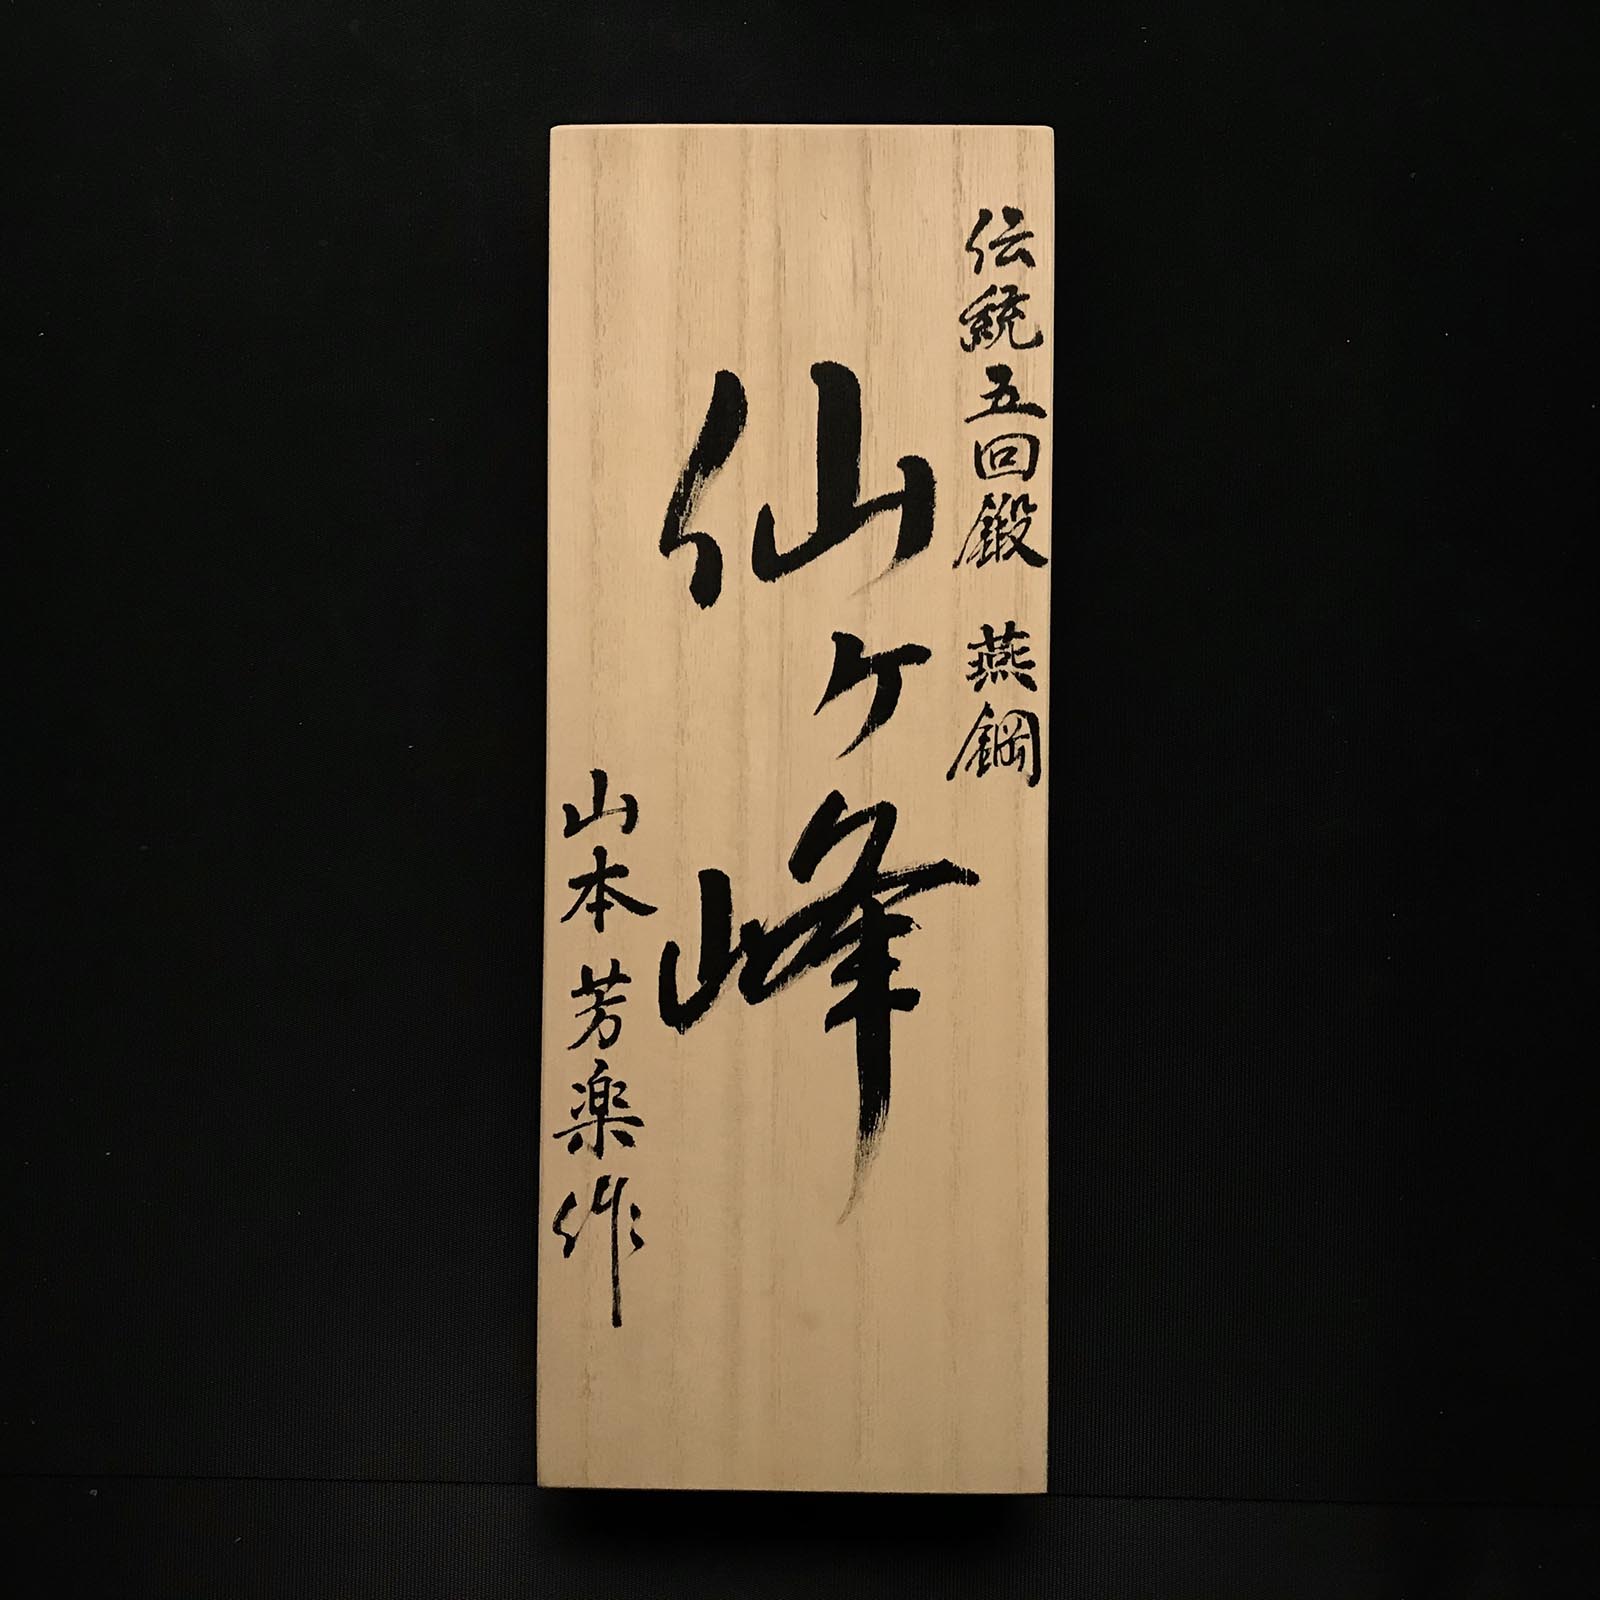 伝統五回鍛 燕鋼
仙ヶ峰
山本芳楽作